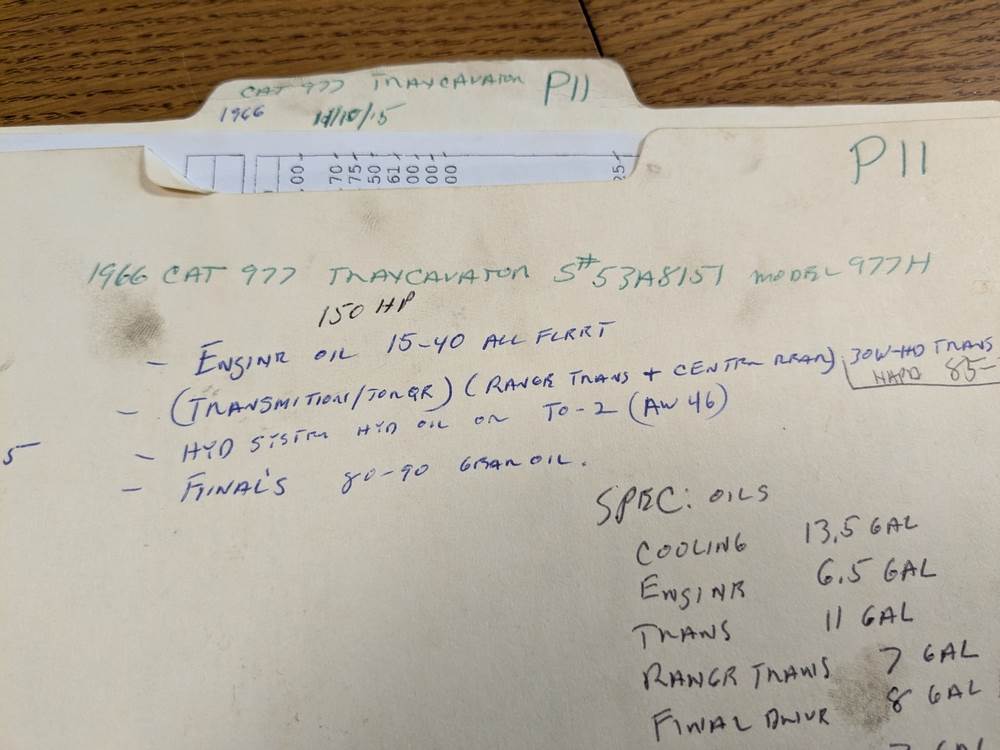 CAT 977 TRAXCAVATOR P11
1966
P11
00
70
75
50
61
00
00
00
25
1966 CAT 977 TRAXCAVATOR S# 53A8151 MODEL 977H
150 HP
- ENGINE OIL 15-40 ALL FLEET
- (TRANSMITION/TORQR) (RANGE TRANS + CENTER REAR) 30W-HD TRANS
NAPA 85-
- HYD SYSTEM HYD OIL OR TO-2 (AW 46)
5
- FINAL'S 80-90 GEAR OIL.
SPEC: OILS
COOLING 13.5 GAL
ENGINE 6.5 GAL
TRANS 11 GAL
RANGE TRANS 7 GAL
FINAL DRIVE 8 GAL